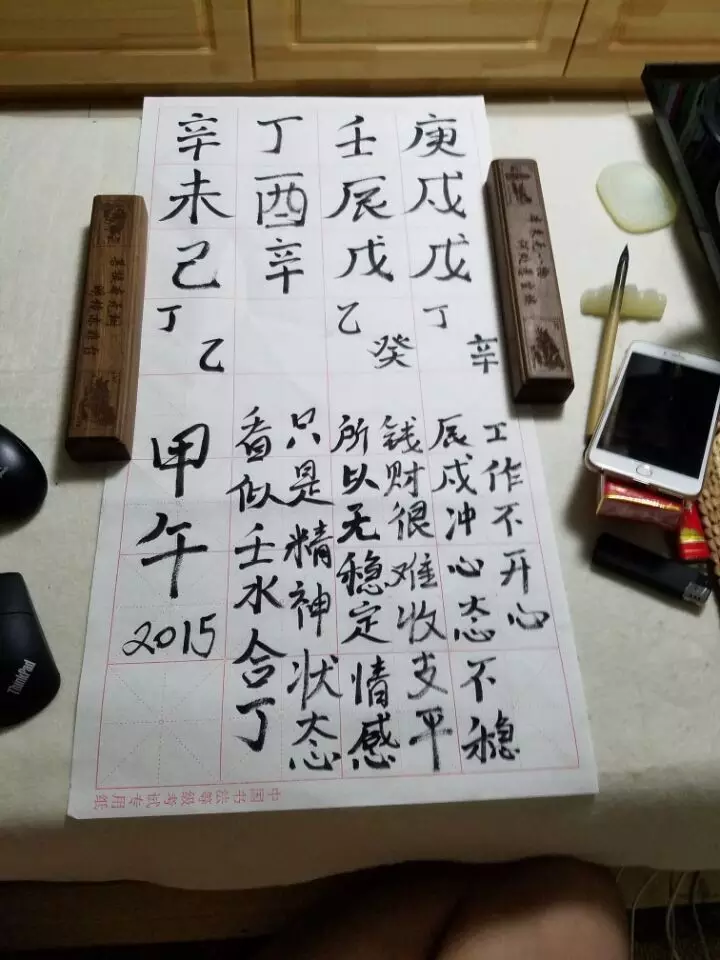 辛未己丁乙
丁酉辛
壬辰戊乙癸
庚戌戊丁辛
甲午
2015
看似壬水合丁
只是精神状态
所以无稳定情感
钱财很难收支平
辰戌冲心态不稳
工作不开心
中国书法等级考试专用纸
ThinkPad